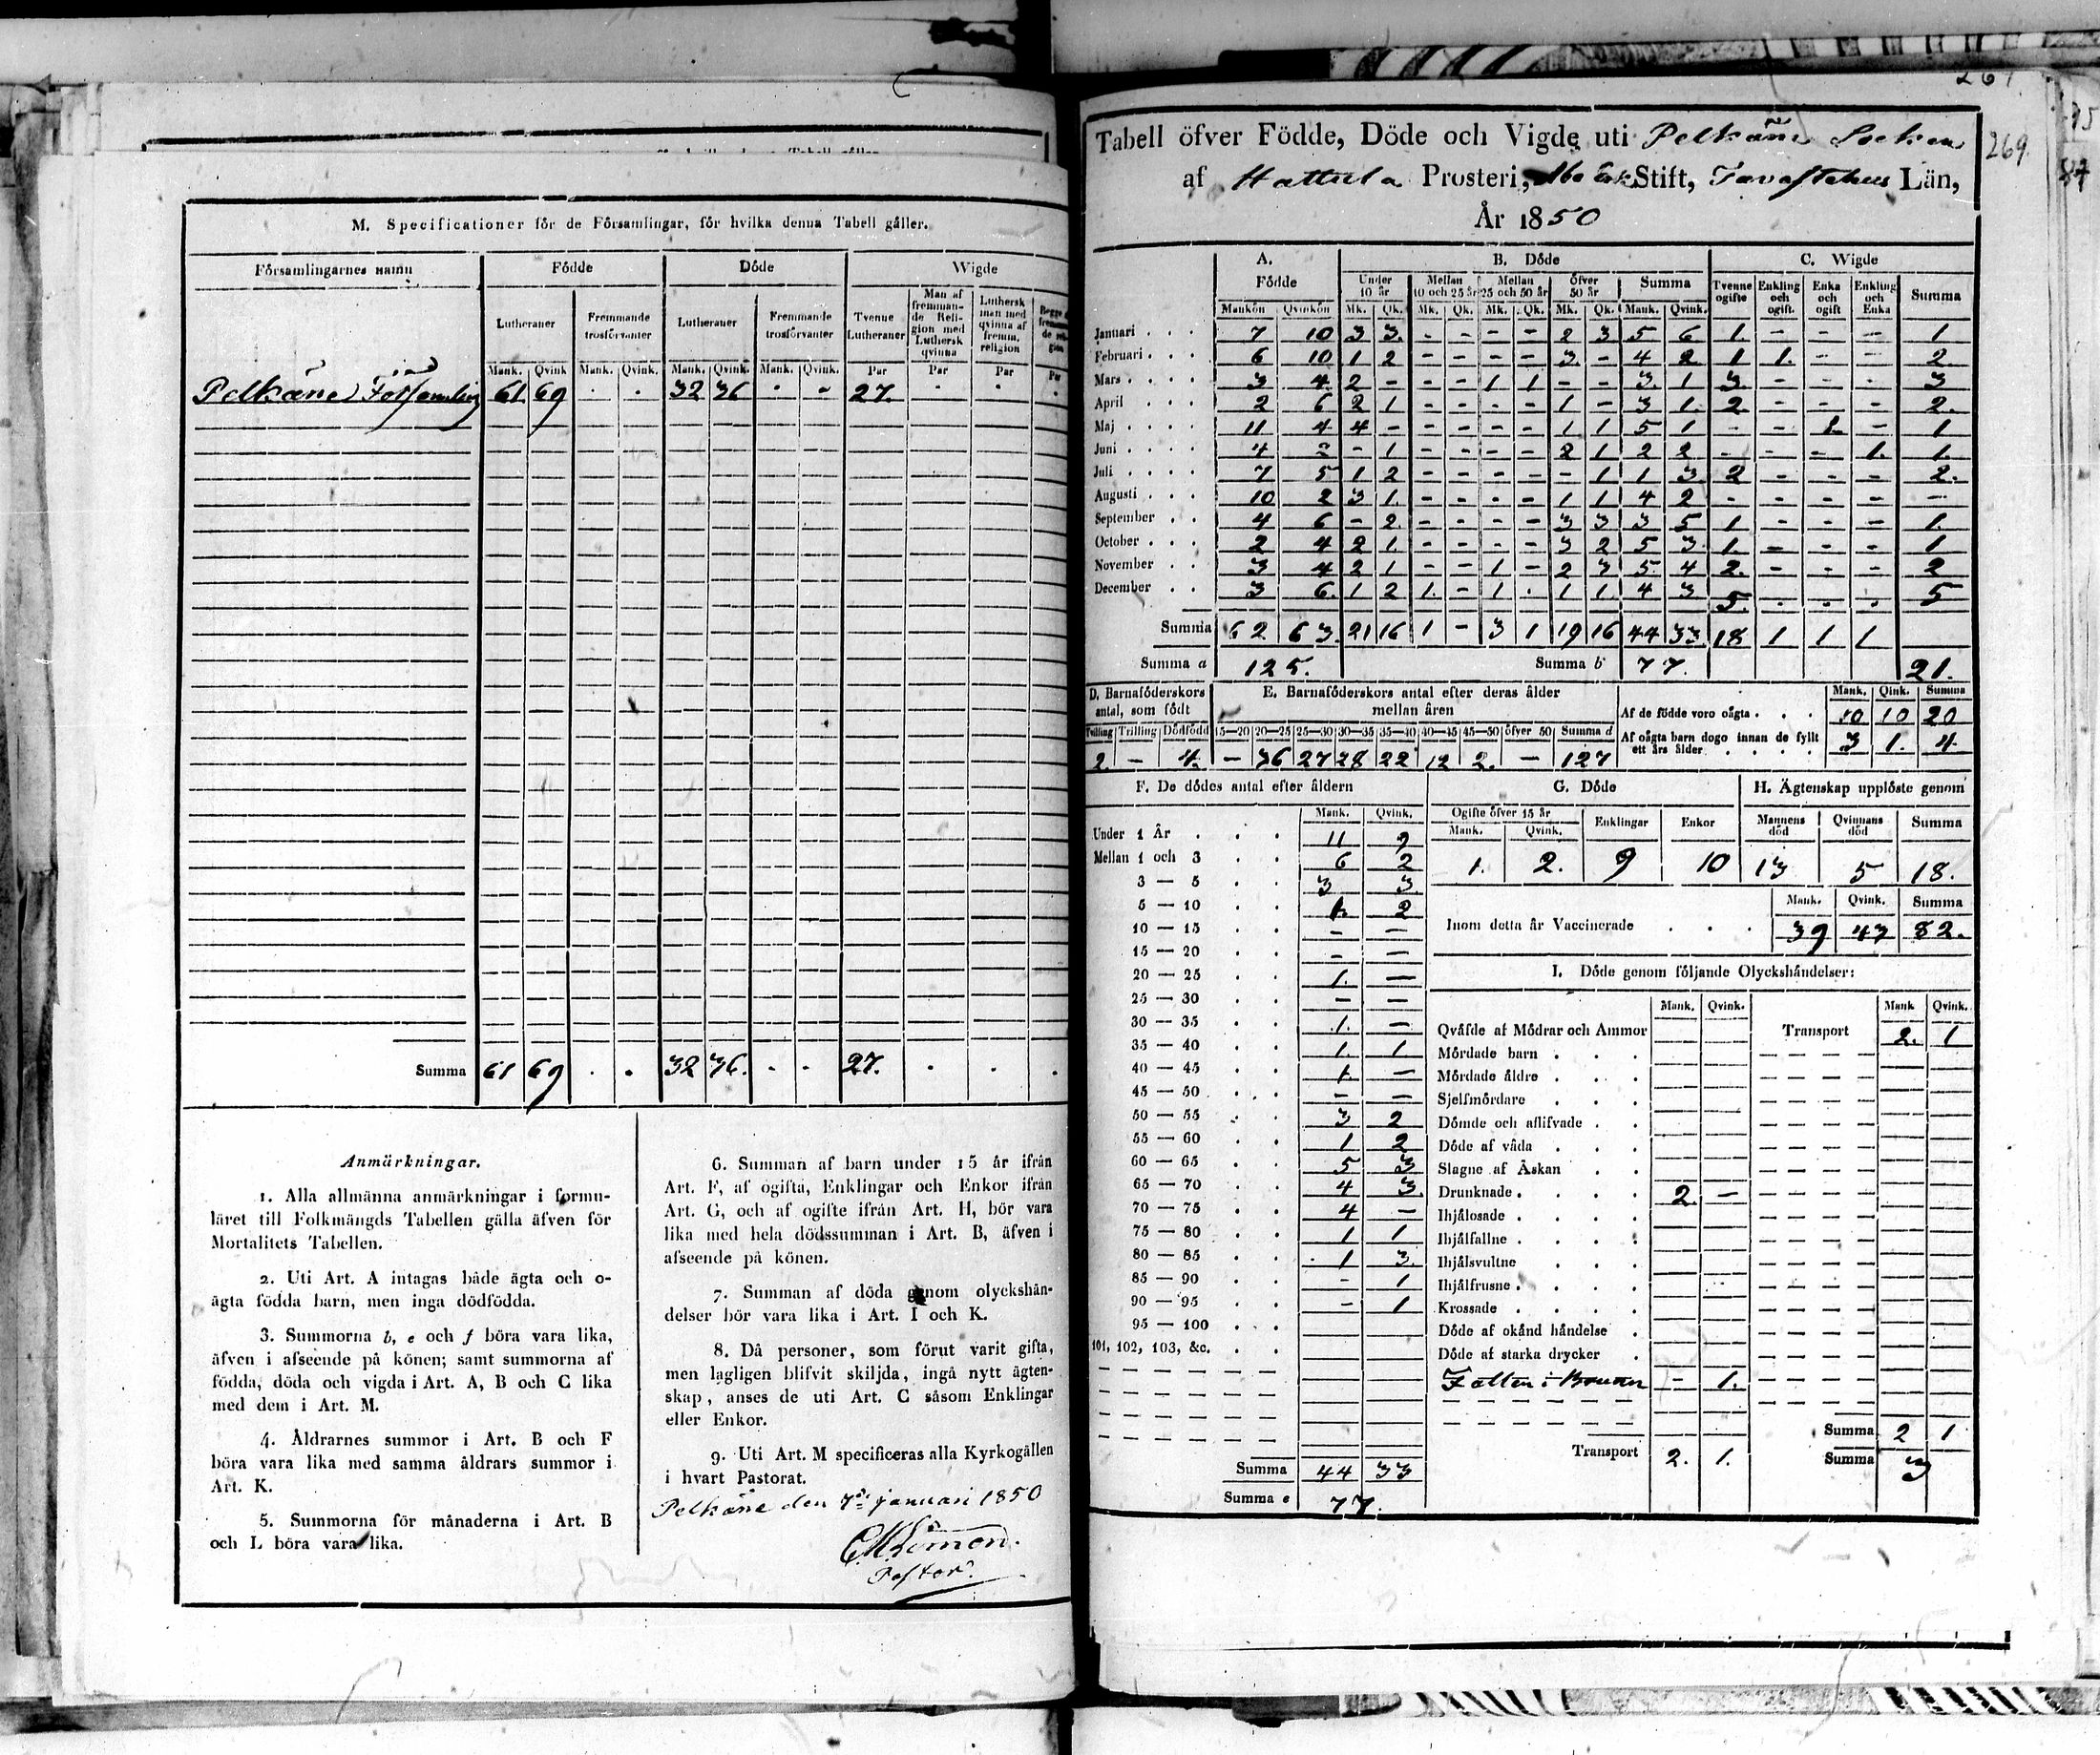 M. Specificationer för de Församlingar, för hvilka denna Tabell gäller.
Församlingarnes namn Födde Döde Wigde
Lutheraner Fremmande trosförvanter Lutheraner Fremmande trosförvanter Tvenne Lutheraner Man af fremmande Religion med Luthersk qvinna Luthersk man med qvinna af fremm. religion
Mank. Qvink Mank. Qvink. Mank. Qvink. Mank. Qvink. Par Par Par Par
Pelkäne Församling 61 69 . . 32 36 . . 27. . . .
Summa 61 69 . . 32 36. . . 27. . . .
Anmärkningar.
1. Alla allmänna anmärkningar i formu-
läret till Folkmängds Tabellen gälla äfven för
Mortalitets Tabellen.
2. Uti Art. A intagas både ägta och o-
ägta födda barn, men inga dödfödda.
3. Summorna b, e och f böra vara lika,
äfven i afseende på könen; samt summorna af
födda, döda och vigda i Art. A, B och C lika
med dem i Art. M.
4. Åldrarnes summor i Art. B och F
böra vara lika med samma åldrars summor i
Art. K.
5. Summorna för månaderna i Art. B
och L böra vara lika.
6. Summan af barn under 15 år ifrån
Art. F, af ogifta, Enklingar och Enkor ifrån
Art. G, och af ogifte ifrån Art. H, bör vara
lika med hela dödssumman i Art. B, äfven i
afseende på könen.
7. Summan af döda genom olyckshän-
delser bör vara lika i Art. I och K.
8. Då personer, som förut varit gifta,
men lagligen blifvit skiljda, ingå nytt ägten-
skap, anses de uti Art. C såsom Enklingar
eller Enkor.
9. Uti Art. M specificeras alla Kyrkogällen
i hvart Pastorat.
Pelkäne den 7de januari 1850
Pastor.
269.
Tabell öfver Födde, Döde och Vigde uti Pelkäne Socken
af Hattula Prosteri, Åbo Erk Stift, Tavastehus Län,
År 1850
A. Födde B. Döde C. Wigde
Under 10 år Mellan 10 och 25 år Mellan 25 och 50 år Öfver 50 år Summa Tvenne ogifte Enkling och ogift. Enka och ogift Enkling och Enka Summa
Mankön Qvinkön Mk. Qk. Mk. Qk. Mk. Qk. Mk. Qk. Mank. Qvink.
Januari 7 10 3 3. - - - - 2 3 5 6 1. - - - 1
Februari 6 10 1 2 - - - - 3. - 4 2 1 1. - - 2
Mars 3 4 2 - - - 1 1 - - 3. 1 3 - - - 3
April 2 6 2 1 - - - - 1 - 3 1. 2. - - - 2.
Maj 11 4 4 - - - - - 1 1 5 1 - - 1. - 1
Juni 4 2 - 1 - - - - 2 1 2 2 - - - 1. 1.
Juli 7 5 1 2 - - - - - 1 1 3. 2 - - - 2.
Augusti 10 2 3 1. - - - - 1 1 4 2 - - - - -
September 4 6 - 2. - - - - 3 3 3 5 1 - - - 1.
October 2 4 2 1. - - - - 3 2 5 3. 1. - - - 1
November 3 4 2 1 - - 1 - 2 3 5. 4 2. - - - 2
December 3 6. 1 2 1. - 1 . 1 1. 4 3. 5. . . . 5
Summa 62 63. 21 16 1 - 3 1 19 16 44 33 18 1 1 1
Summa a 125. Summa b 77. 21.
D. Barnaföderskors antal, som födt
Tvilling Trilling Dödfödd
2. - 4.
E. Barnaföderskors antal efter deras ålder mellan åren
15—20 20—25 25—30 30—35 35—40 40—45 45—50 öfver 50 Summa d
- 36 27 28 22 12 2. - 127
Mank. Qink. Summa
Af de födde voro oägta 10 10 20
Af oägta barn dogo innan de fyllt ett års ålder 3 1. 4.
F. De dödes antal efter åldern
Mank. Qvink.
Under 1 År 11 9
Mellan 1 och 3 6 2
3 — 5 3 3.
5 — 10 1. 2
10 — 15 - -
15 — 20 - -
20 — 25 1. -
25 — 30 - -
30 — 35 1. -
35 — 40 1. 1
40 — 45 1. -
45 — 50 - -
50 — 55 3 2
55 — 60 1 2
60 — 65 5 3
65 — 70 4 3.
70 — 75 4 -
75 — 80 1 1
80 — 85 1 3.
85 — 90 - 1
90 — 95 - 1
95 — 100
101, 102, 103, &c.
Summa 44 33
Summa e 77.
G. Döde
Ogifte öfver 15 år Enklingar Enkor
Mank. Qvink.
1. 2. 9 10
H. Ägtenskap upplöste genom
Mannens död Qvinnans död Summa
13 5 18.
Mank. Qvink. Summa
Inom detta år Vaccinerade 39 43 82.
I. Döde genom följande Olyckshändelser:
Mank. Qvink. Mank Qvink.
Qväfde af Mödrar och Ammor
Transport 2. 1
Mördade barn
Mördade äldre
Sjelfmördare
Dömde och aflifvade
Döde af våda
Slagne af Åskan
Drunknade 2. -
Ihjälosade
Ihjälfallne
Ihjälsvultne
Ihjälfrusne
Krossade
Döde af okänd händelse
Döde af starka drycker
Fallen i Brunn - 1.
Transport 2. 1.
Summa 2 1
Summa 3